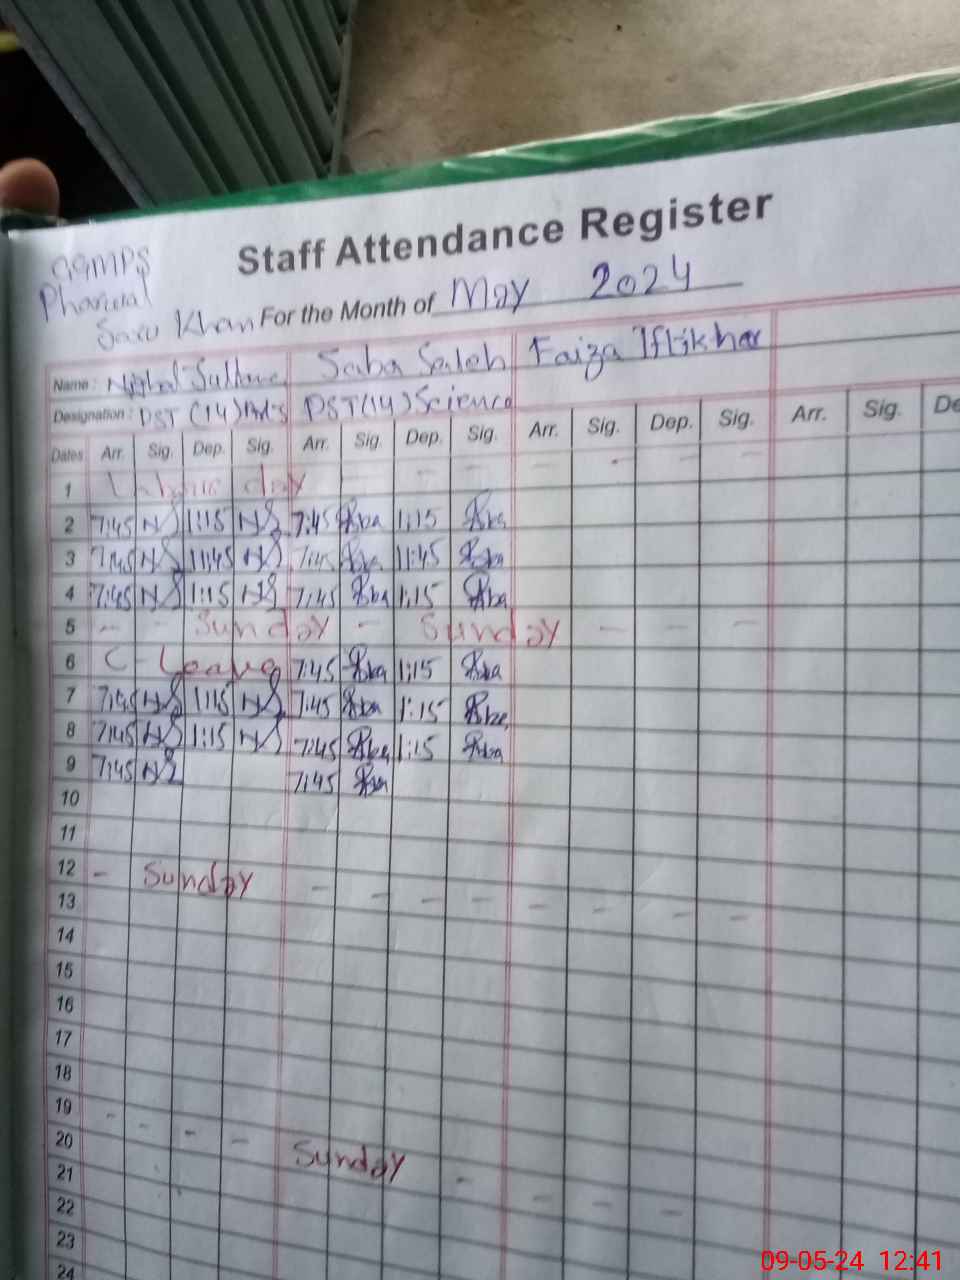 GGMPS
Staff Attendance Register
Saru Khan For the Month of May 2024
Name: Sultana Saba Saleh Faiza Iftikhar
Designation: PST (14) Arts PST (14) Science
Dates Arr. Sig. Dep. Sig. Arr. Sig. Dep. Sig. Arr. Sig. Dep. Sig. Arr. Sig. De
1 day - - - - - - -
2 7:45 NS 1:15 NS 7:45 Sba 1:15 Sba
3 7:45 NS 11:45 NS 7:45 Sba 11:45 Sba
4 7:45 NS 1:15 NS 7:45 Sba 1:15 Sba
5 - - Sunday - Sunday - - -
6 C - Leave 7:45 Sba 1:15 Sba
7 7:45 NS 1:15 NS 7:45 Sba 1:15 Sba
8 7:45 NS 1:15 NS 7:45 Sba 1:15 Sba
9 7:45 NS 7:45 Sba
10
11
12 - Sunday - - - - - - - -
13
14
15
16
17
18
19 - - - - Sunday - - - -
20
21
22
23
24
09-05-24 12:41